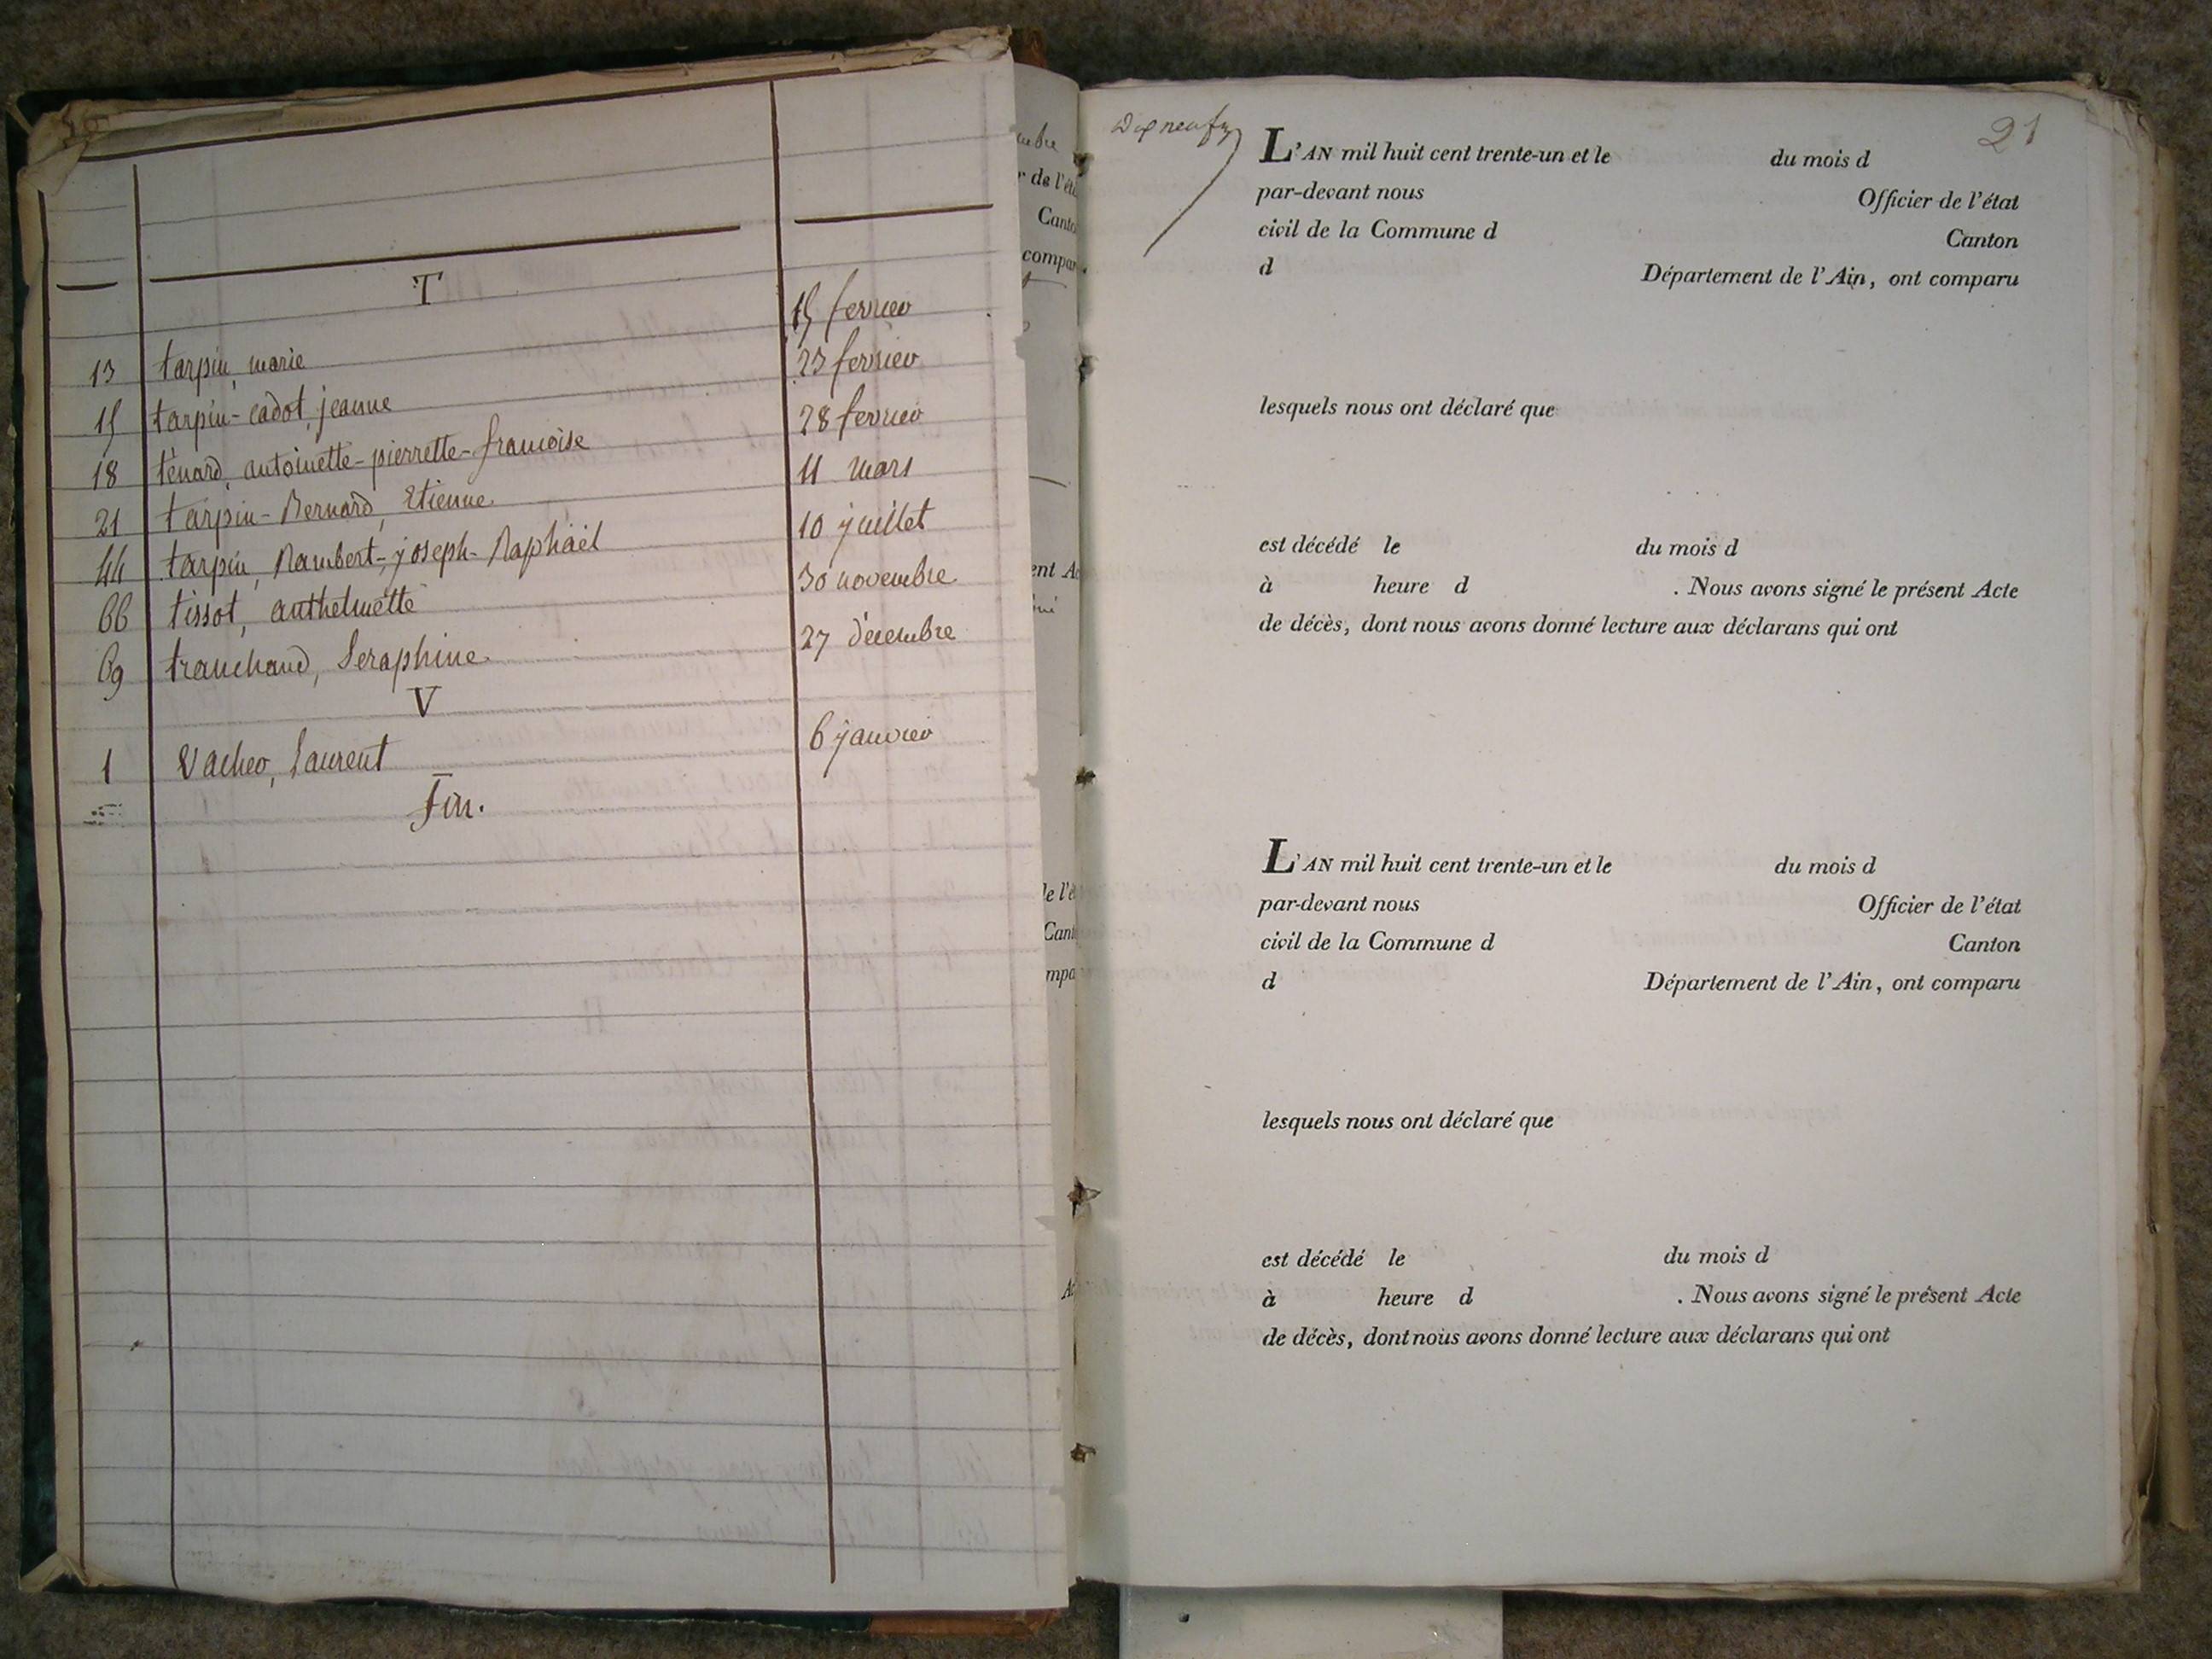 T
13 tarpin, marie 15 fevrier
15 tarpin-cadot, jeanne 23 fevrier
18 ténard, antoinette-pierrette-francoise 28 fevrier
21 tarpin-Bernard, Etienne 11 mars
44 tarpin, Rambert-joseph-Raphaël 10 juillet
66 tissot, anthelmette 30 novembre
69 tranchand, Seraphine 27 décembre
V
1 Vacher, Laurent 6 janvier
Fin.
mbre
r de l'éta
Canto
compar
ent Ac
de l'é
Cant
mpa
Ac
21
L'AN mil huit cent trente-un et le du mois d
par-devant nous Officier de l'état
civil de la Commune d Canton
d Département de l'Ain, ont comparu
lesquels nous ont déclaré que
est décédé le du mois d
à heure d . Nous avons signé le présent Acte
de décès, dont nous avons donné lecture aux déclarans qui ont
L'AN mil huit cent trente-un et le du mois d
par-devant nous Officier de l'état
civil de la Commune d Canton
d Département de l'Ain, ont comparu
lesquels nous ont déclaré que
est décédé le du mois d
à heure d . Nous avons signé le présent Acte
de décès, dont nous avons donné lecture aux déclarans qui ont